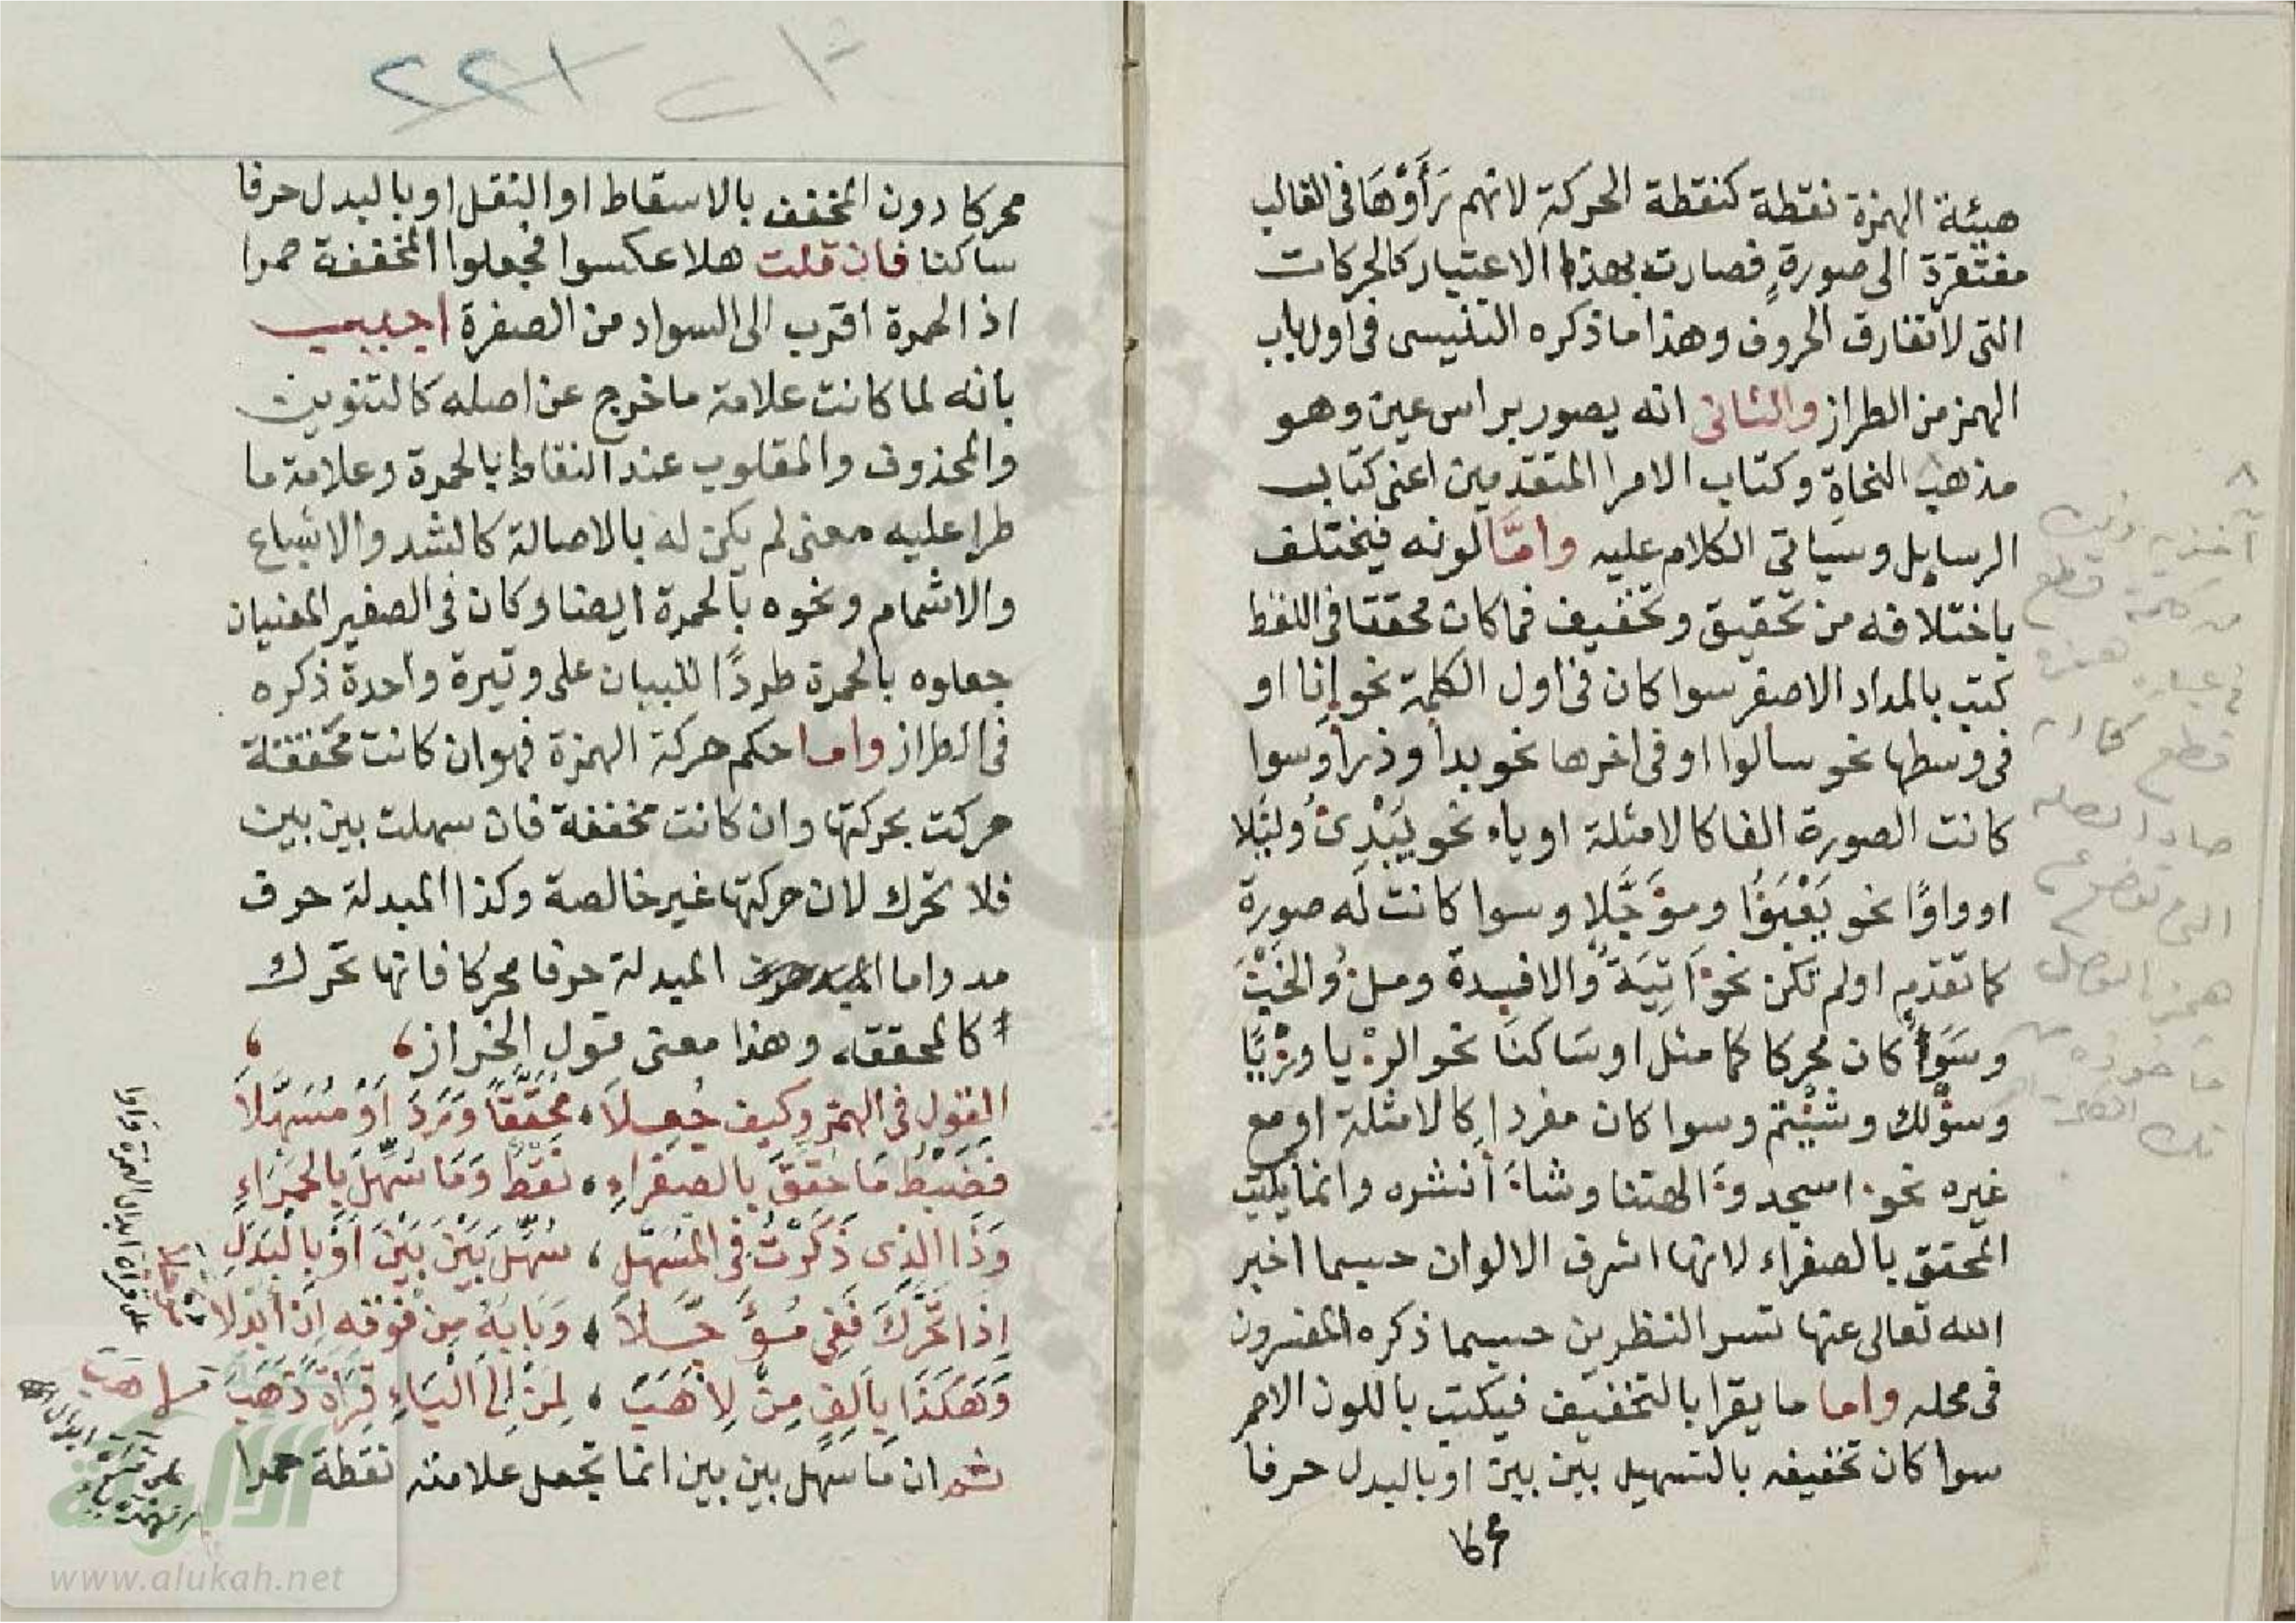 هيئة الهمزة نقطة كنقطة الحركة لانهم رَأَوْهَا فى الغالب
مفتقرة الى صورةٍ فصارت بهذا الاعتبار كالحركات
التى لا تفارق الحروف وهذا ما ذكره التنيسى فى اول باب
الهمز من الطراز والثانى انه يصور براس عين وهو
مذهب النحاة وكتاب الامرا المتقدمين اعنى كتاب
الرسايل وسياتى الكلام عليه وامَّا لونه فيختلف
باختلافه من تحقيق وتخفيف فما كان محققا فى اللفظ
كتب بالمداد الاصفر سوا كان فى اول الكلمة نحو إنا او
فى وسطها نحو سالوا او فى اخرها نحو بدأ وذرأ وسوا
كانت الصورة الفا كالامثلة او ياء نحو يُبْدِئُ ولئِلا
او واوًا نحو يَعْبَؤُا ومؤَجَّلًا وسوا كانت له صورة
كما تقدم او لم تكن نحو ءَاتِيَةٌ والافـدة وملءُ والخبْءَ
وسَوَاً كان محركا كما مثل او سَاكنَا نحو الرءْيا ورءْيًا
وسؤْلك وشئْتم وسوا كان مفردا كالامثلة او مع
غيره نحو ءاسجد وءَالهتنا وشاءَ أنشره وانما يكتب
المحقق بالصفراء لانها اشرف الالوان حسبما اخبر
الله تعالى عنها تسر النظرين حسبما ذكره المفسرون
فى محله واما ما يقرا بالتخفيف فيكتب باللون الاحمر
سوا كان تخفيفه بالتسهيل بين بين او بالبدل حرفا
محركا
محركا دون المخفف بالاسقاط او النقل او بالبدل حرفا
ساكنا فان قلت هلا عكسوا فجعلوا المخففة حمرا
اذ الحمرة اقرب الى السواد من الصفرة اجيب
بانه لما كانت علامة ما خرج عن اصله كالتنوين
والمحذوف والمقلوب عند النقاط بالحمرة وعلامة ما
طرا عليه معنى لم يكن له بالاصالة كالشد والاشباع
والاشمام ونحوه بالحمرة ايضا وكان فى الصغير المعنيان
جعلوه بالحمرة طردًا للبيان على وتيرة واحدة ذكره
فى الطراز واما حكم حركة الهمزة فهو ان كانت محققة
حركت بحركتها وان كانت مخففة فان سهلت بين بين
فلا تحرك لان حركتها غير خالصة وكذا المبدلة حرف
مد واما المبدلة حرفا محركا فانها تحرك
كالمحققه وهذا معنى قول الخراز
القول فى الهمز وكيف جُعِلاَ، مُحَقَّقًا وَرَدَ أَوْ مُسَهَّلاَ
فَضَبْطُ مَا حُقِّقَ بالصفراءِ، نَقْطٌ وَمَا سُهِّلَ بِالحمرَاءِ
وَذَا الذى ذَكَرْتُ فى المُسَهَّلِ، سُهِّلَ بَيْنَ بَيْنَ أَوْ بِالْبَدَلِ
إِذَا تَحَرَّكَ فَفِى مُؤَجَّلاَ، وَبَابِهِ مِنْ فَوْقِهِ إِن أُبْدِلاَ
وَهَكَذَا بِأَلِفٍ مِنْ لِأَهَبَ، لِمَنْ إِلَى الْيَاءِ قِرَاءَةً ذَهَبَ
ثم ان مَا سُهل بين بين انما تجعل علامته نقطة حمرا
www.alukah.net